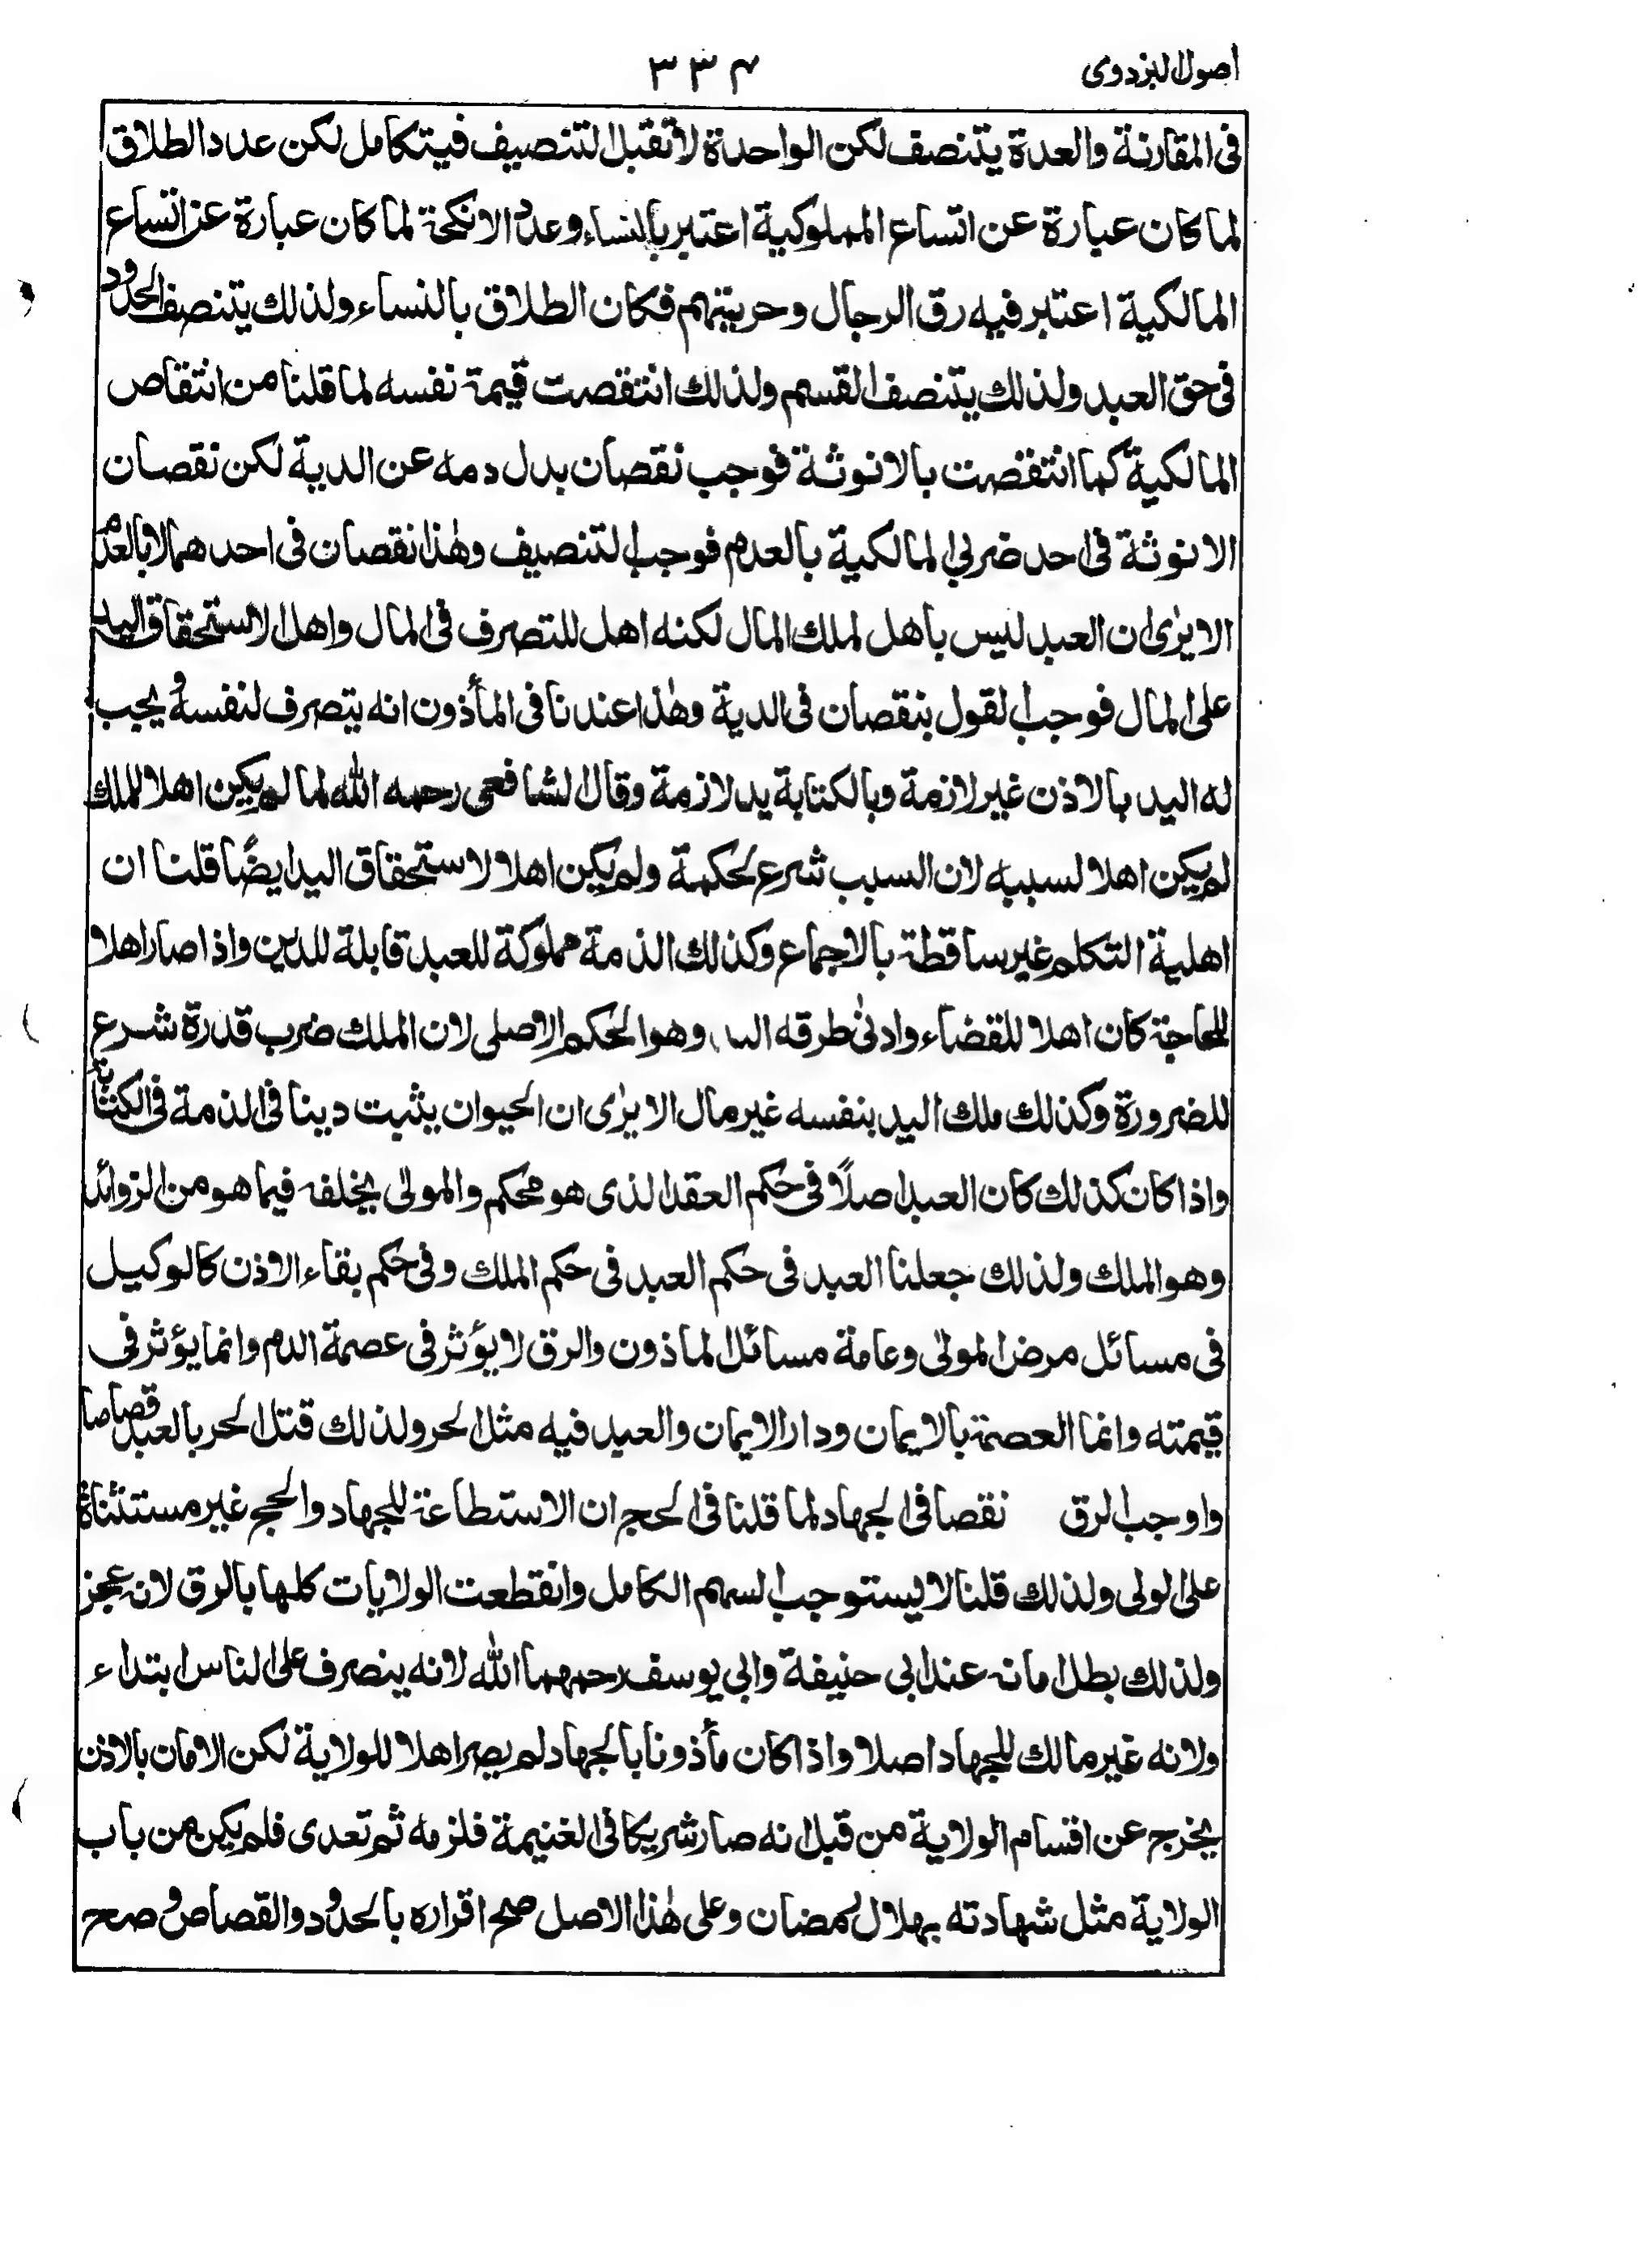 اصول البزدوی
۳۳۴
فی المقارنة والعدة يتنصف لكن الواحدة لا تقبل التنصيف فيتكامل لكن عدد الطلاق
لما كان عبارة عن اتساع المملوكية اعتبر بالنساء وعدد الانكحة لما كان عبارة عن اتساع
المالكية اعتبر فيه رق الرجال وحريتهم فكان الطلاق بالنساء ولذلك يتنصف الحدود
فی حق العبد ولذلك يتنصف القسم ولذلك انتقصت قيمة نفسه لما قلنا من انتقاص
المالكية كما انتقصت بالانوثة فوجب نقصان بدل دمه عن الدية لكن نقصان
الانوثة فی احد ضربی المالكية بالعدم فوجب التنصيف وهٰذا نقصان فی احدهما لا بالعدم
الا يرٰی ان العبد ليس باهل لملك المال لكنه اهل للتصرف فی المال واهل لاستحقاق اليد
علی المال فوجب القول بنقصان فی الدية وهٰذا عندنا فی المأذون انه يتصرف لنفسه ويجب
له اليد بالاذن غير لازمة وبالكتابة يد لازمة وقال الشافعی رحمه الله لما لم يكن اهلا للملك
لم يكن اهلا لسببه لان السبب شرع لحكمة ولم يكن اهلا لاستحقاق اليد ايضًا قلنا ان
اهلية التكلم غير ساقطة بالاجماع وكذلك الذمة مملوكة للعبد قابلة للدين واذا صار اهلا
للحاجة كان اهلا للقضاء وادنٰی طرقه وهو الحكم الاصلی لان الملك ضرب قدرة شرع
للضرورة وكذلك ملك اليد بنفسه غير مال الا يرٰی ان الحيوان يثبت دينا فی الذمة فی الكتابة
واذا كان كذلك كان العبد اصلًا فی حكم العقد الذی هو محكم والمولی يخلفه فيما هو من الزوائد
وهو الملك ولذلك جعلنا العبد فی حكم العبد فی حكم الملك وفی حكم بقاء الاذن كالوكيل
فی مسائل مرض المولی وعامة مسائل الماذون والرق لا يؤثر فی عصمة الدم وانما يؤثر فی
قيمته وانما العصمة بالايمان ودار الايمان والعبد فيه مثل الحر ولذلك قتل الحر بالعبد قصاصا
واوجب الرق نقصا فی الجهاد لما قلنا فی الحج ان الاستطاعة للجهاد والحج غير مستثناة
علی المولی ولذلك قلنا لا يستوجب السهم الكامل وانقطعت الولايات كلها بالرق لانه عجز
ولذلك بطل امانه عند ابی حنيفة وابی يوسف رحمهما الله لانه ينصرف علی الناس ابتداء
ولانه غير مالك للجهاد اصلا واذا كان مأذونا بالجهاد لم يصر اهلا للولاية لكن الامان بالاذن
يخرج عن اقسام الولاية من قبل انه صار شريكا فی الغنيمة فلزمه ثم تعدی فلم يكن من باب
الولاية مثل شهادته بهلال رمضان وعلی هٰذا الاصل صح اقراره بالحدود والقصاص وصح